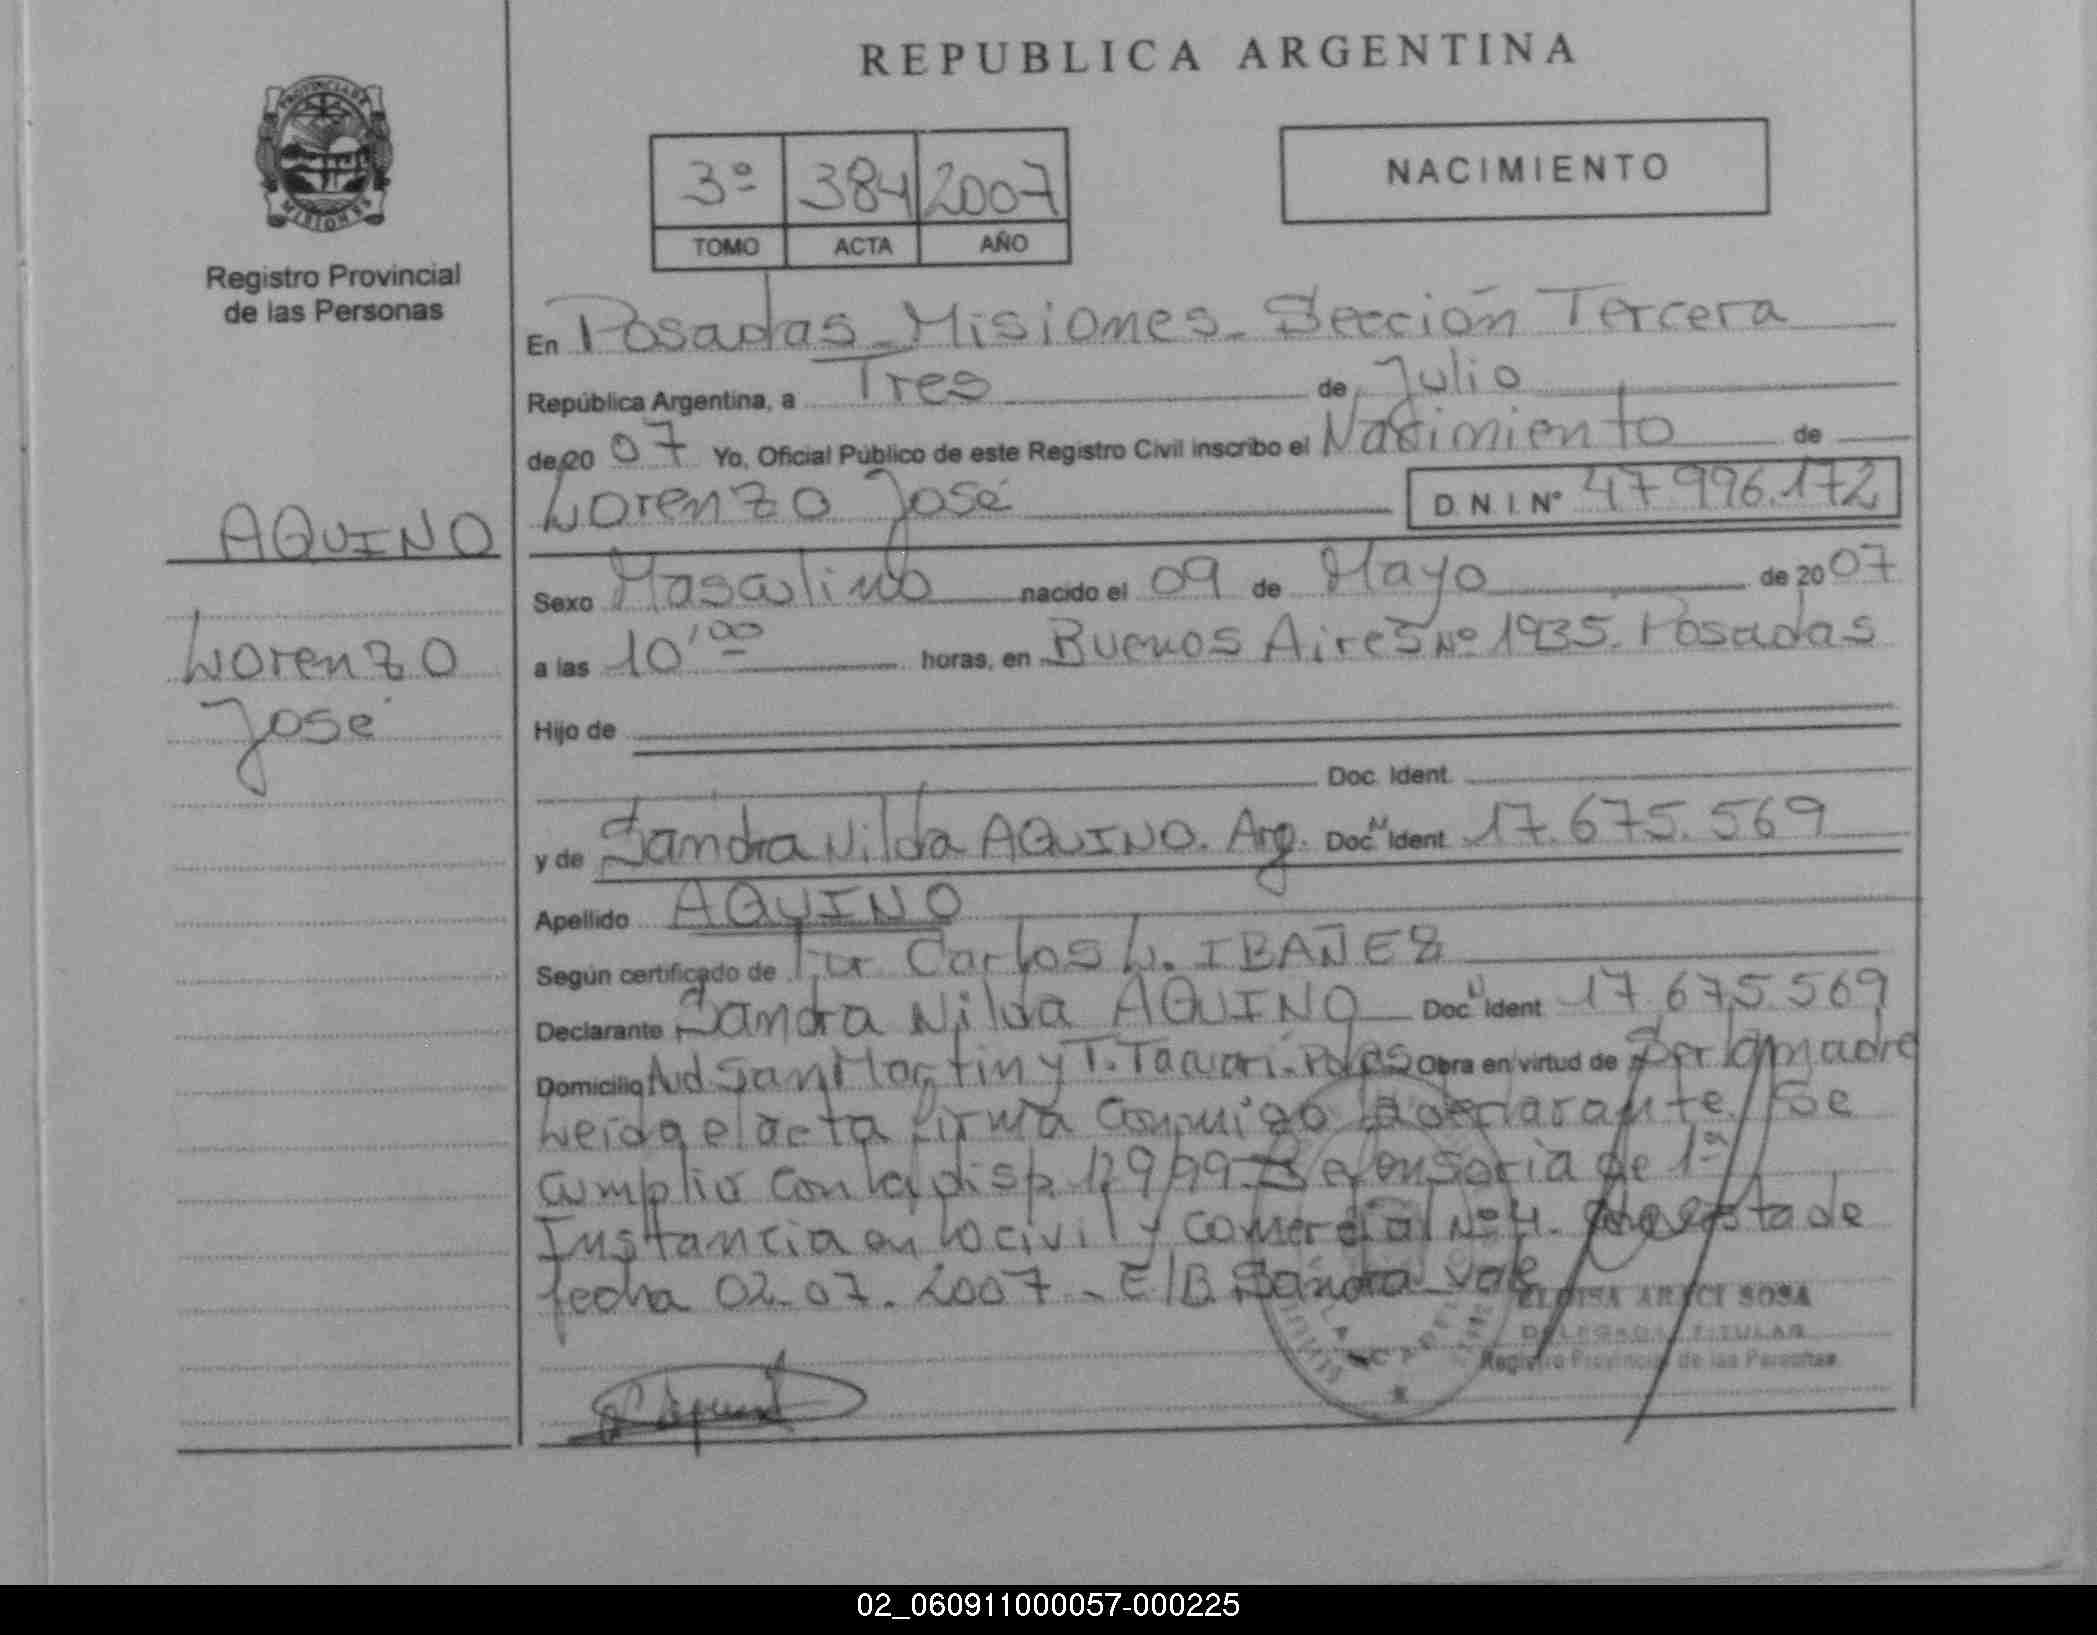 REPUBLICA ARGENTINA
PROVINCIA DE
MISIONES
Registro Provincial
de las Personas
3º 384 2007
TOMO ACTA AÑO
NACIMIENTO
En Posadas - Misiones - Sección Tercera
República Argentina, a Tres de Julio
de 20 07 Yo, Oficial Público de este Registro Civil inscribo el Nacimiento de
Lorenzo José D.N.I. Nº 47.996.172
AQUINO
Lorenzo
José
Sexo Masculino nacido el 09 de Mayo de 20 07
a las 10,00 horas, en Buenos Aires Nº 1935. Posadas
Hijo de
Doc. Ident.
y de Sandra Nilda AQUINO. Arg. Doc. N Ident 17.675.569
Apellido AQUINO
Según certificado de Carlos L. IBAÑEZ
Declarante Sandra Nilda AQUINO Doc N Ident 17.675.569
Domicilio Avd. San Martin y T. Tacuari - Pdas Obra en virtud de Ser la madre
Leida el acta firma Conmigo la declarante. Se
cumplio con la disp. 129/99 - Defensoria de 1ª
Instancia en lo civil y comercial Nº 4. de
fecha 02.07.2007 - E/B. Sandra Vale
ELOISA ARECI SOSA
DELEGADA TITULAR
Registro Provincial de las Personas
02_060911000057-000225